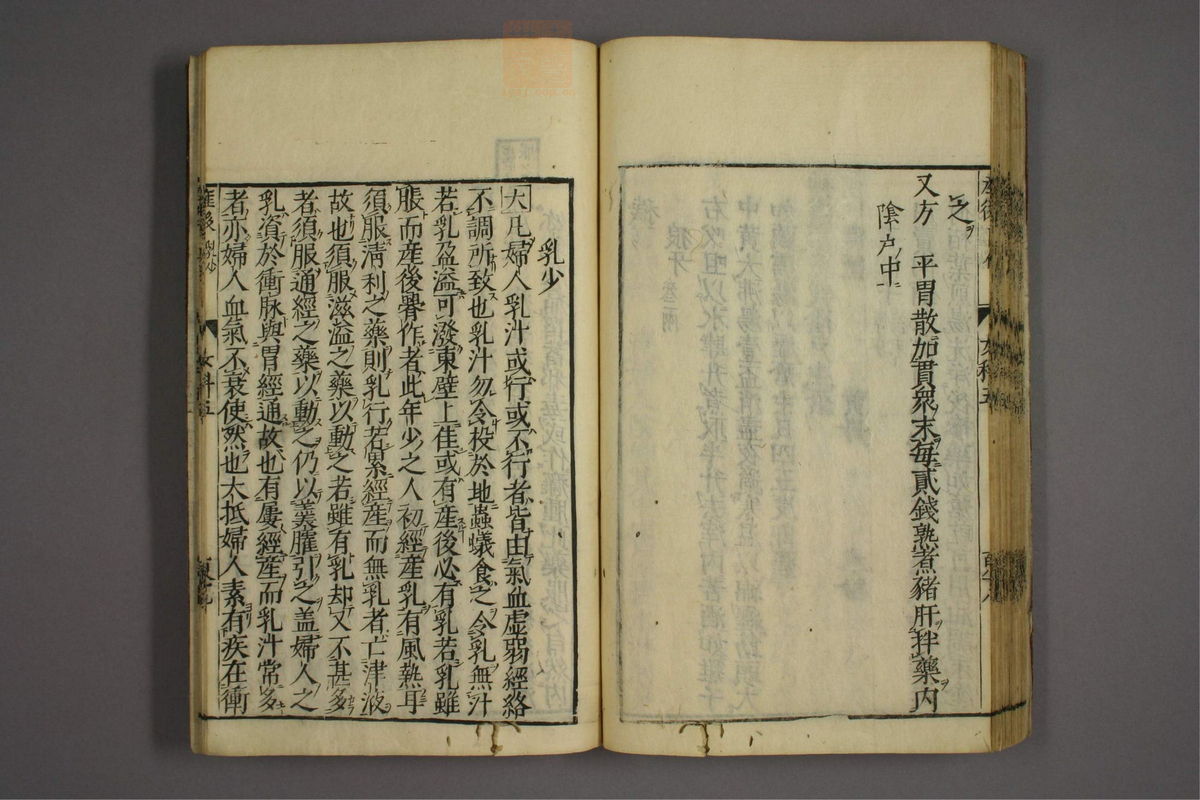 之
又方 平胃散加貫衆末毎貳錢熟煮豬肝拌藥內
陰戶中
乳少
大凡婦人乳汁或行或不行者皆由氣血虛弱經絡
不調所致也乳汁勿令投於地蟲蟻食之令乳無汁
若乳盈溢可潑東壁上佳或有產後必有乳若乳雖
脹而產後作者此年少之人初經產乳有風熱耳
須服清利之藥則乳行若累經產而無乳者亡津液
故也須服滋溢之藥以動之若雖有乳却又不甚多
者須服通經之藥以動之仍以羹臛引之盖婦人之
乳資於衝脉與胃經通故也有屢經產而乳汁常多
者亦婦人血氣不衰使然也大抵婦人素有疾在衝
產後 乳少 女科五